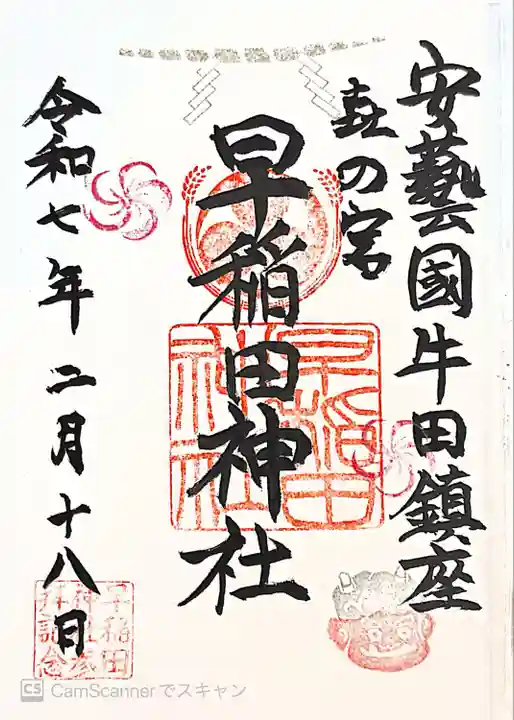 安藝國牛田鎮座
壵の宮
早稲田神社
早稲田
神社
令和七年二月十八日
早稲田
神社参
拝記念
CS CamScannerでスキャン